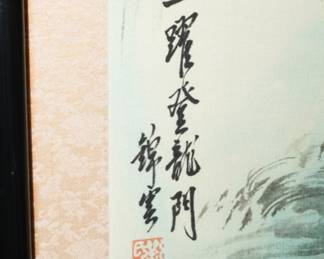 一躍登龍門
錦雲